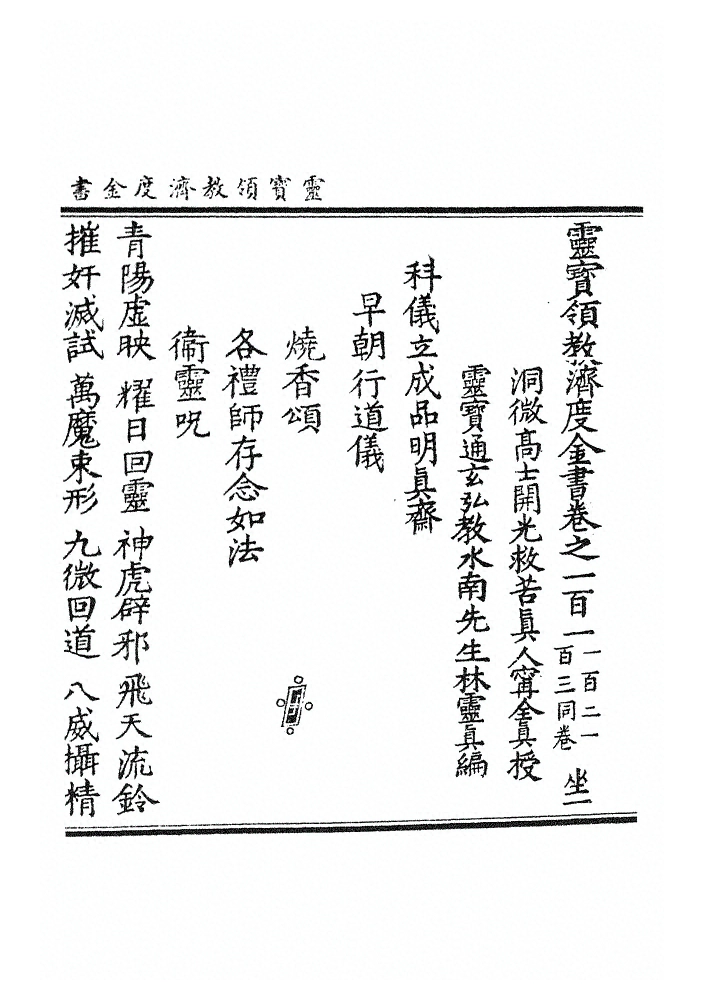 靈寶領教濟度金書
靈寶領教濟度金書卷之一百一 一百二一百三同卷 坐一
洞微高士開光救苦眞人甯全眞授
靈寶通玄弘教水南先生林靈眞編
科儀立成品明眞齋
早朝行道儀
燒香頌
各禮師存念如法
衞靈呪
青陽虛映 耀日回靈 神虎辟邪 飛天流鈴
摧奸滅試 萬魔束形 九微回道 八威攝精